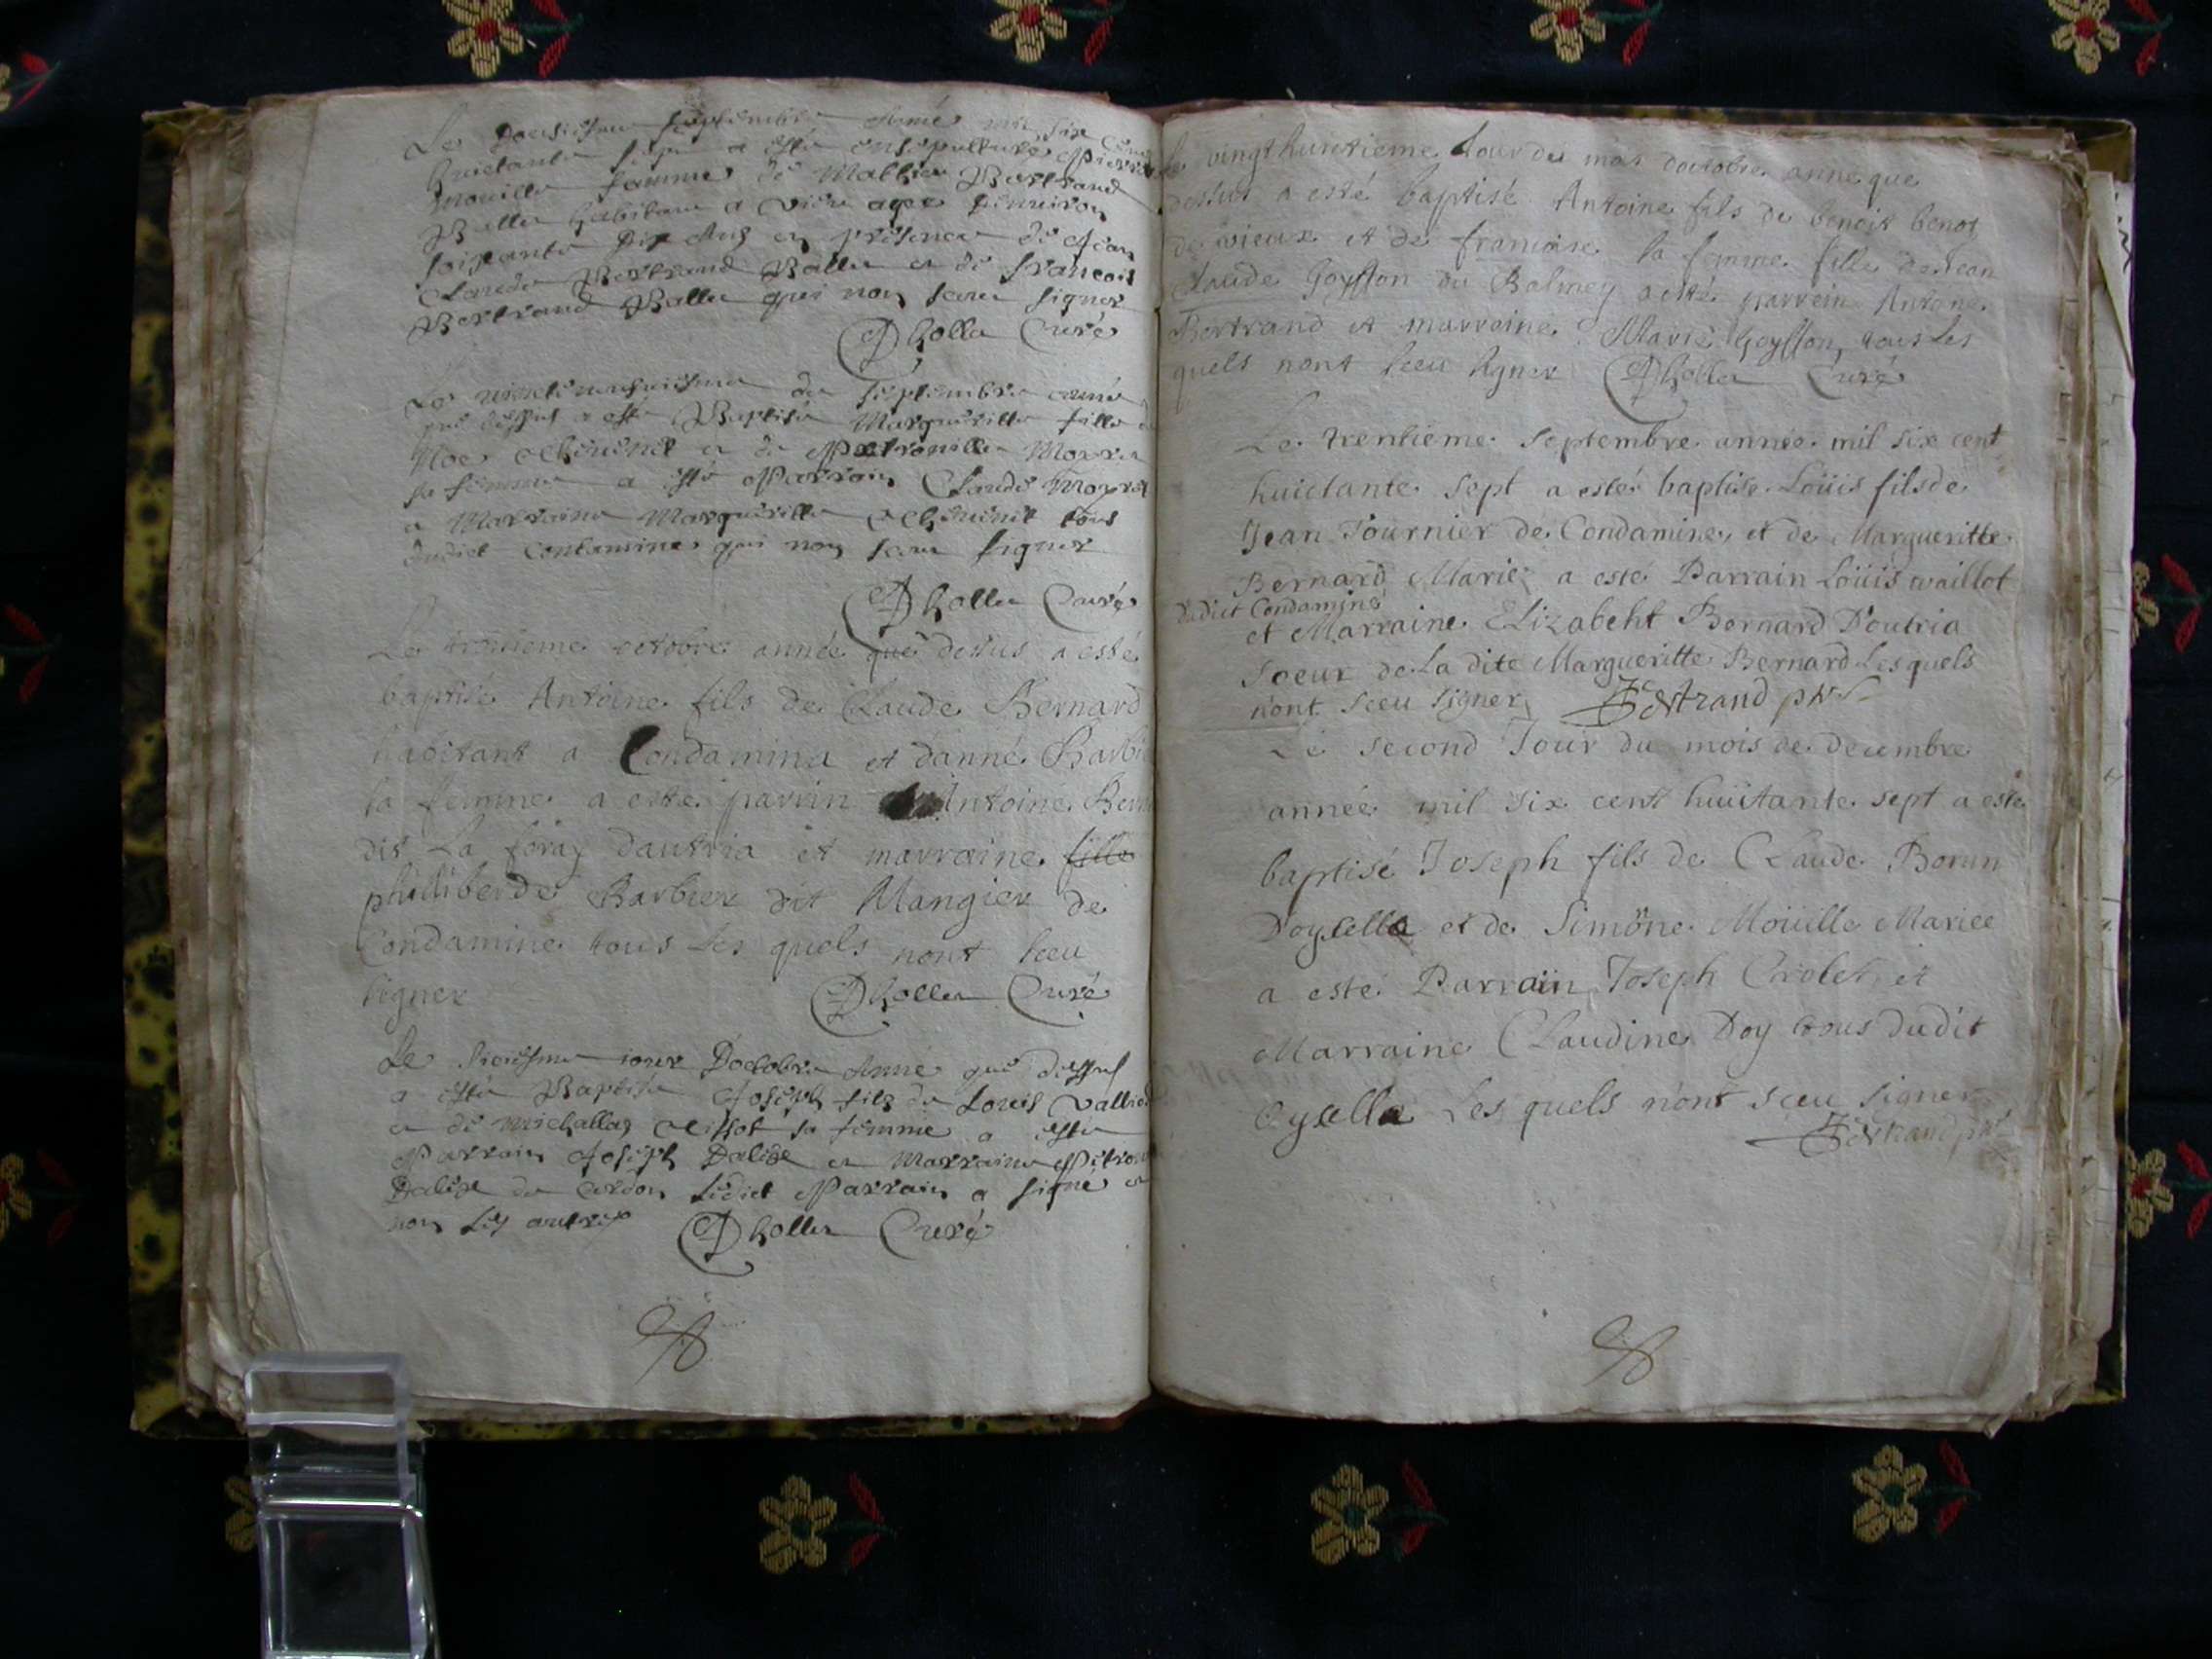 Le septembre année mil six cent
huictante sept a esté ensepulturé Pierre
Mouille famme de Mathieu Bertrand
Ballu habitant a agee
soixante dix ans en présence de Jean
Claude Bertrand Ballu et de françois
Bertrand Ballu qui non sceu signer
Dholler Curé
Le de septembre année
que dessus a esté Baptisée Margueritte fille
Noe et de
sa femme a esté Parrain Claude
et Marraine Margueritte tous
dudict Contamine qui non sceu signer
Dholler Curé
Le troisieme octobre année que dessus a esté
baptisé Antoine fils de Claude Bernard
habitant a Condamina et danne
sa femme a esté parrin Antoine
dit La foray dautria et marraine fille
philliberde Barbier dit Mangier de
Condamine tous Les quels nont sceu
signer Dholler Curé
Le jour Doctobre Année que dessus
a esté Baptisé Joseph fils de Louis
et de sa femme a esté
Parrain Joseph Dalise et Marraine
Dalise de Cerdon Ledict Parrain a signé et
non Les autres Dholler Curé
Le vingt huictieme Jour du mois doctobre anne que
dessus a esté baptisé Antoine fils de benoit benot
de vieux et de francoise sa femme fille de Jean
Claude Goyffon du Balmey a esté parrein Antoine
Bertrand et marreine Marie Goyffon tous Les
quels nont sceu signer Dholler Curé
Le trentieme septembre année mil six cent
huictante sept a esté baptise Loüis fils de
Jean Tournier de Condamine et de Margueritte
Bernard Mariez a esté Parrain Loüis vaillot
dudict Condamine
et Marraine Elizabeht Bernard D'outria
soeur de La dite Margueritte Bernard Lesquels
n'ont sceu signer Bertrand
Le second Jour du mois de decembre
année mil six cent huictante sept a esté
baptisé Joseph fils de Claude
D'oysella et de Simöne Moüille Mariee
a esté Parrain Joseph Crolet et
Marraine Claudine Doy tous dudit
Oysella Les quels n'ont sceu signer
Bertrand